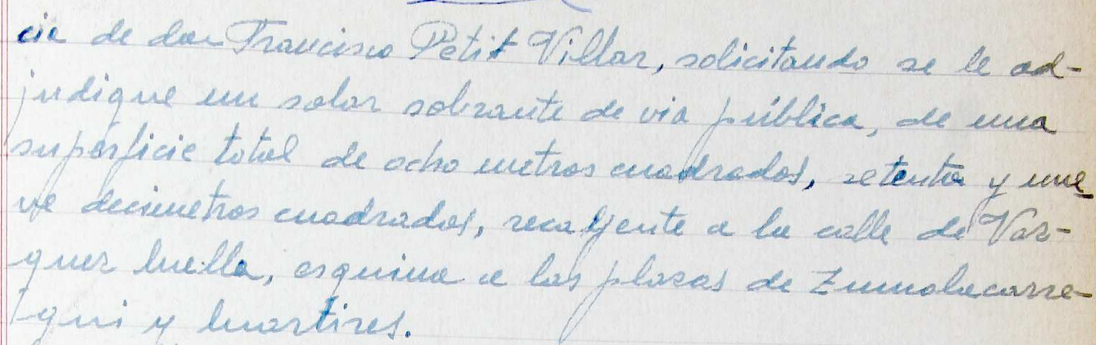 cia de don Francisco Petit Villar, solicitando se le ad-
judique un solar sobrante de via pública, de una
superficie total de ocho metros cuadrados, setenta y nue
ve decimetros cuadrados, recayente a la calle de Vaz-
quez Mella, esquina a las plazas de Zumalacarre-
gui y Martires.